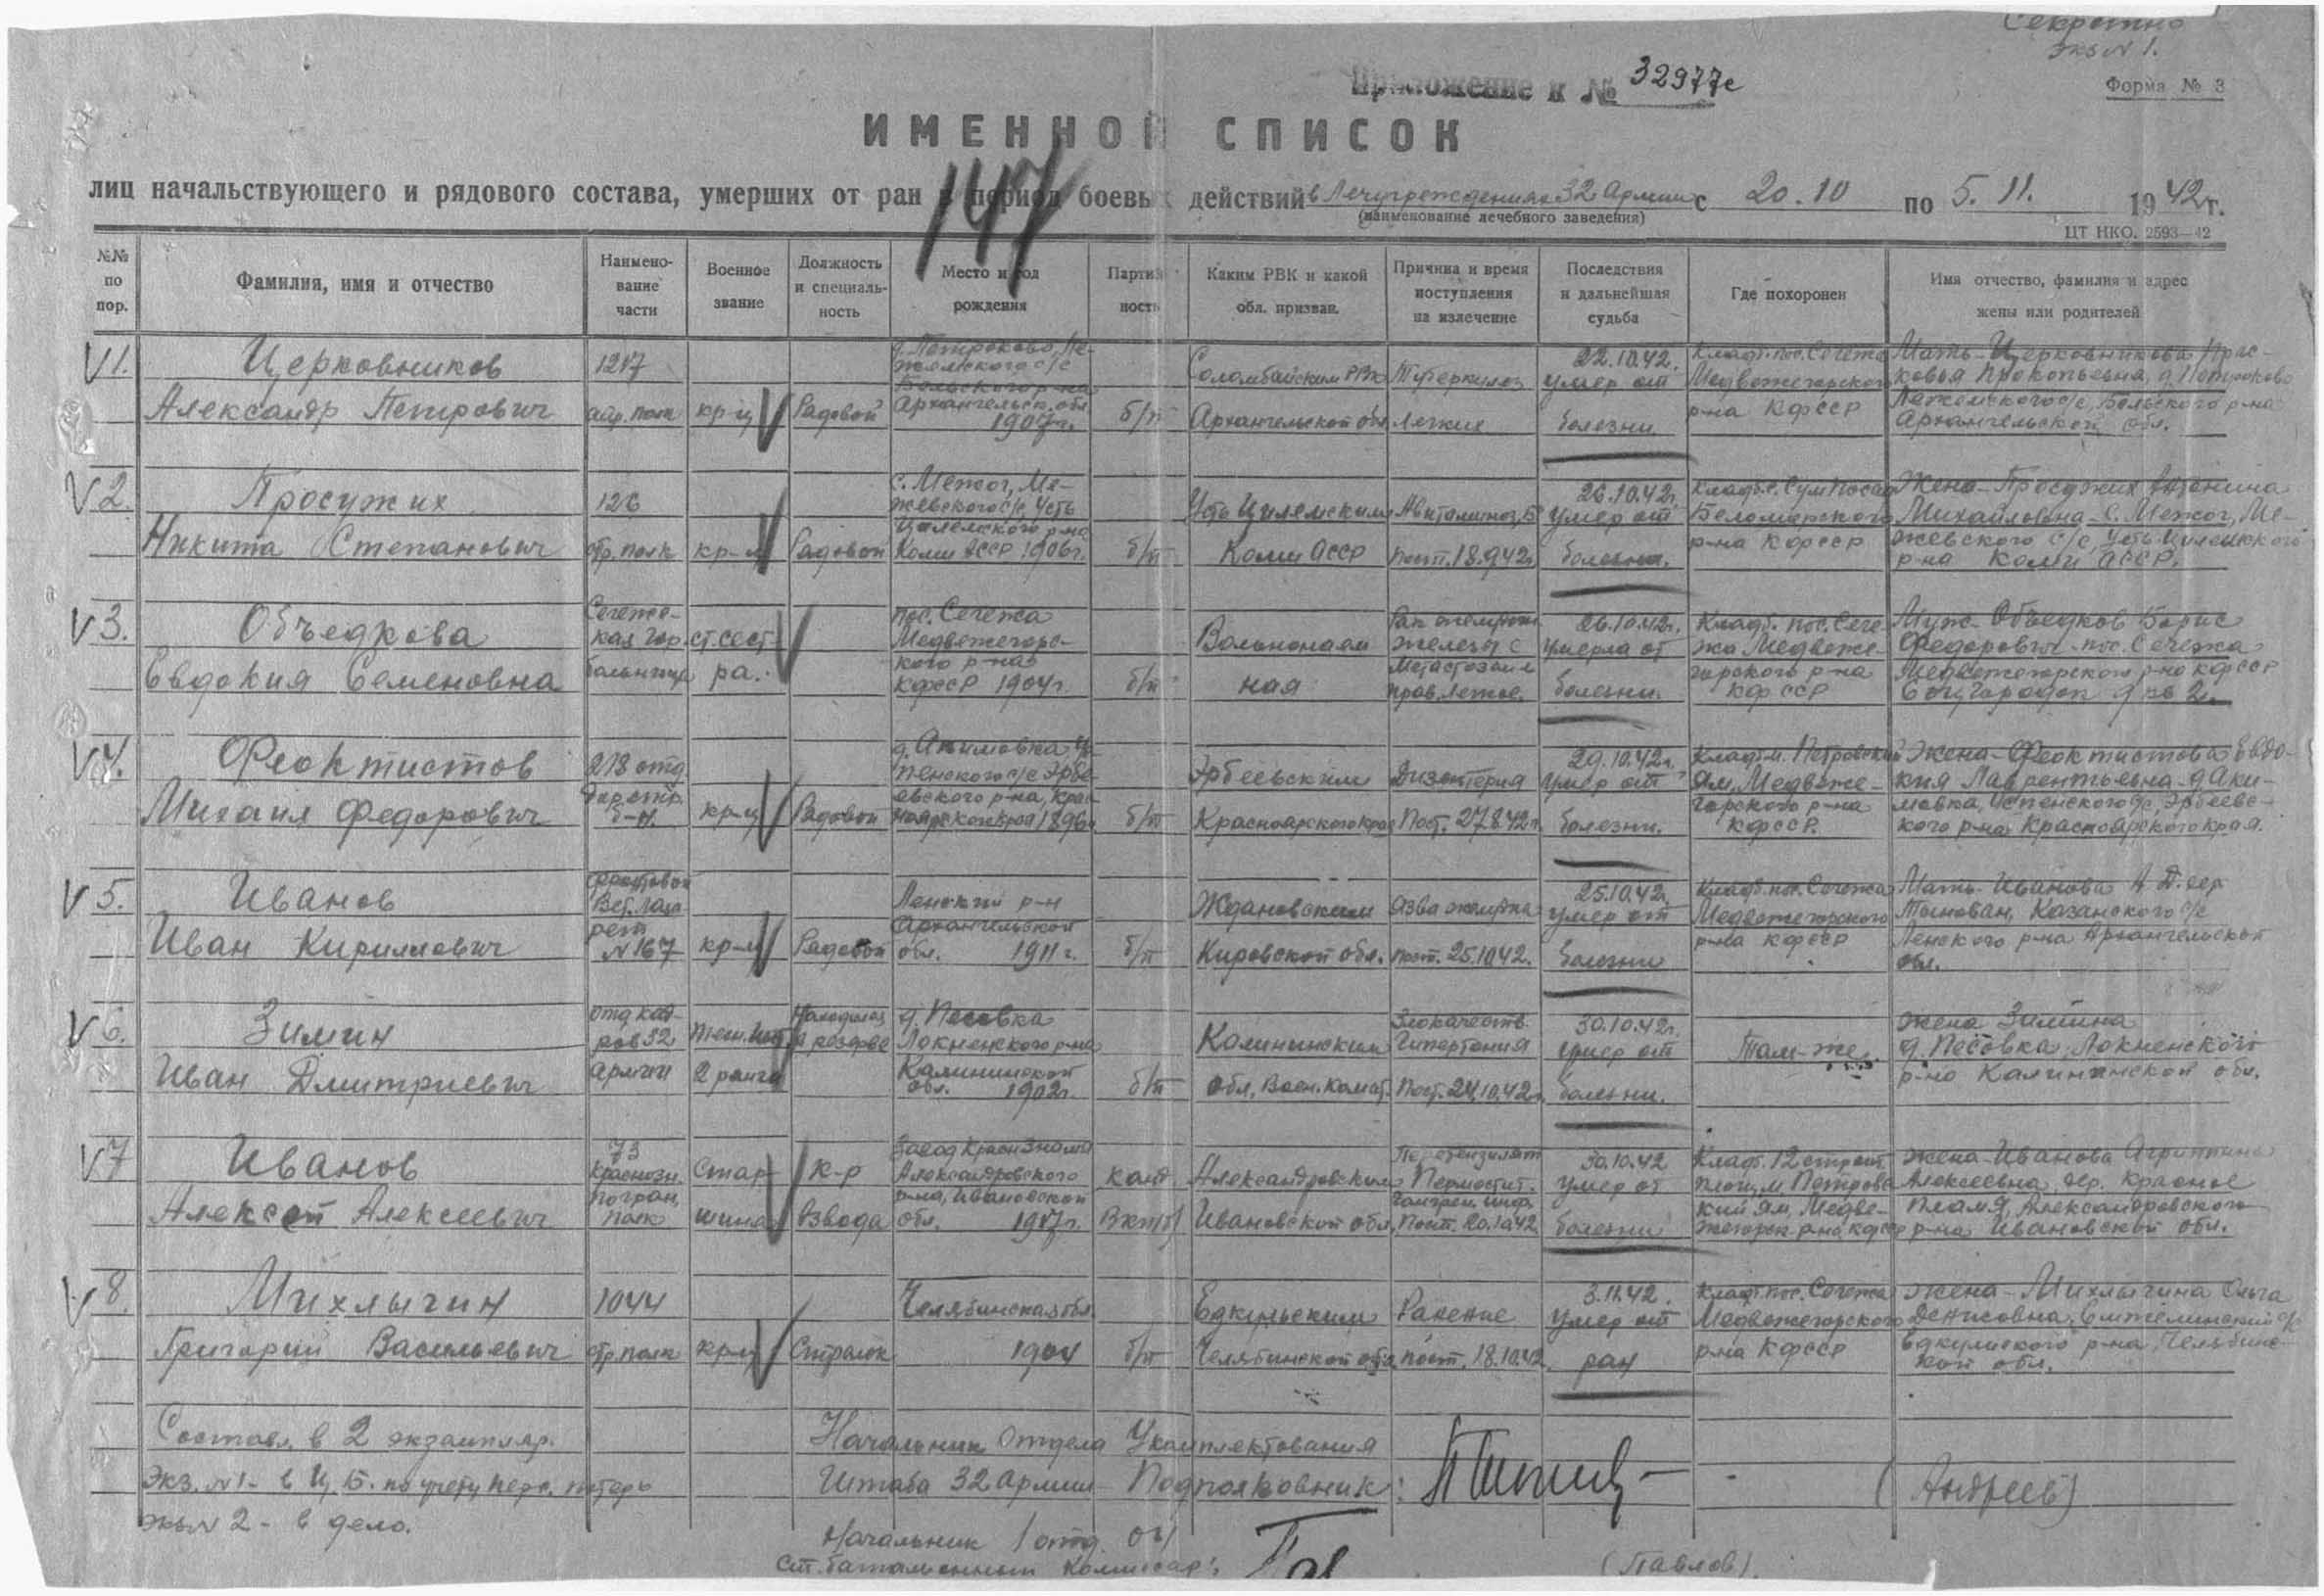 Секретно
экз № 1.
Приложение к № 32977с
Форма № 3
ИМЕННОЙ СПИСОК
147
лиц начальствующего и рядового состава, умерших от ран в период боевых действий в Лечучреждениях 32 Армии с 20.10 по 5.11. 1942 г.
(наименование лечебного заведения)
ЦТ НКО. 2593—42
№№ по пор.
Фамилия, имя и отчество
Наименование части
Военное звание
Должность и специальность
Место и год рождения
Партийность
Каким РВК и какой обл. призван.
Причина и время поступления на излечение
Последствия и дальнейшая судьба
Где похоронен
Имя отчество, фамилия и адрес жены или родителей
1. Церковников
Александр Петрович
1217
кр-ц
Рядовой
д. Петроково,
Архангельск. обл
1907г.
б/п
Соломбайским РВК
Архангельской обл.
Туберкулез
Легких
22.10.42.
умер от
болезни
Кладб. пос. Сегежа
Медвежегорского
р-на КФССР
Мать – Церковникова Прас-
ковья Прокопьевна, д. Петроково
Архангельской обл.
2. Просужих
Никита Степанович
126
стр. полк
кр-ц
Рядовой
с. Межог, Ме-
жевского с/с, Усть
Цилемского р-на
Коми АССР 1906г.
б/п
Усть Цилемским
Коми АССР
Авитаминоз,
пост. 18.9.42г.
26.10.42г.
умер от
болезни.
Кладб. с. Сумпосад
Беломорского
р-на КФССР
Жена – Просужих
Михайловна – с. Межог, Ме-
жевского с/с, Усть Цилемского
р-на Коми АССР.
3. Объедкова
Евдокия Семеновна
Сегежс-
кая гор.
больница
ст. сест-
ра.
пос. Сегежа
Медвежегорс-
кого р-на
КФССР 1904г.
б/п
Вольнонаем
ная
Рак
железы с
Метастазами
прав. легкое.
26.10.42г.
умерла от
болезни.
Кладб. пос. Сеге-
жа Медвеже-
горского р-на
КФССР
Муж – Объедков Борис
Федорович – пос. Сегежа
Медвежегорского р-на КФССР
4. Феоктистов
Михаил Федорович
278 отд
стр.
б-н.
кр-ц
Рядовой
д. Акимовка
р-на, Крас
ноярского края 1896г
б/п
Ирбеевским
Красноярского края
Дизентерия
Пост. 27.8.42г.
29.10.42г.
умер от
болезни.
Кладб. м. Петровский
Ям, Медвеже-
горского р-на
КФССР.
Жена – Феоктистова Евдо-
кия Лаврентьевна д. Аки-
мовка,
кого р-на Красноярского края.
5. Иванов
Иван Кириллович
фронтовой
Вет. Лаза-
рет
№ 167
кр-ц
Рядовой
Ленский р-н
Архангельской
обл. 1911 г.
б/п
Ждановским
Кировской обл.
Язва желудка
пост. 25.10.42.
25.10.42г.
умер от
болезни
Кладб. пос. Сегежа
Медвежегорского
р-на КФССР
Мать – Иванова
Казанского с/с
Ленского р-на Архангельской
обл.
6. Зимин
Иван Дмитриевич
отд кад-
ров 32
Армии
Техн. инт.
2 ранга
Находился
в резерве
д. Песовка
Локненского р-на
Калининской
обл. 1902г.
б/п
Калининским
обл. Воен. Комат.
Злокачеств.
Гипертония
Пост. 24.10.42г.
30.10.42г.
умер от
болезни.
Там-же.
Жена Зимина
д. Песовка, Локненского
р-на Калининской обл.
7 Иванов
Алексей Алексеевич
73
Краснозн.
погран.
полк
Стар-
шина
к-р
взвода
Завод Красн Знамя
Александровского
р-на, Ивановской
обл. 1917г.
канд
ВКП(б)
Александровским
Ивановской обл.
Пост. 20.10.42
30.10.42
умер от
болезни
Кладб. 12 строит.
площ. м. Петровс
кий Ям, Медве-
жегорск. р-на, КФССР
Жена – Иванова Агриппина
Алексеевна, дер. Красное
Пламя, Александровского
р-на Ивановской обл.
8. Михлыгин
Григорий Васильевич
1044
стр. полк
кр-ц
Стрелок
Челябинская обл.
1904
б/п
Еткульским
Челябинской обл.
Ранение
пост. 18.10.42
3.11.42.
умер от
ран
Кладб. пос. Сегежа
Медвежегорского
р-на КФССР
Жена – Михлыгина Ольга
Денисовна,
р-на, Челябинс-
кой обл.
Составл. в 2 экземпляр.
Экз. №1 – в Ц.Б. по учету перс. потерь
экз № 2 – в дело.
Начальник Отдела Укомплектования
Штаба 32 Армии – Подполковник:
(Андреев)
Начальник 1 отд. ОУ
Ст. батальонный Комиссар:
(Павлов).